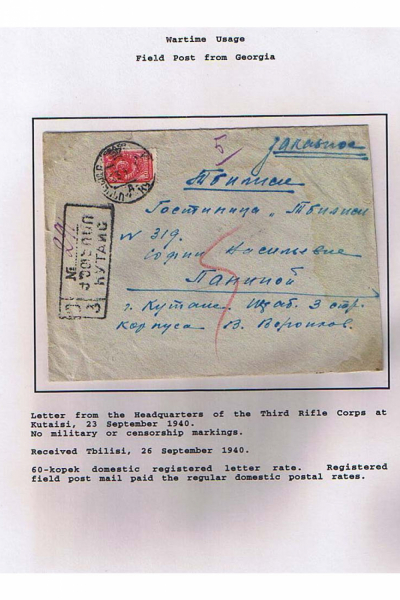 Wartime Usage
Field Post from Georgia
5
Заказное
Тбилиси
Гостиница „Тбилиси
№ 319.
Софии Васильевне
Паниной
г. Кутаис. Штаб. 3 стр.
Корпуса В. Воронков.
№
ქუთაისი
КУТАИС
З
Letter from the Headquarters of the Third Rifle Corps at
Kutaisi, 23 September 1940.
No military or censorship markings.
Received Tbilisi, 26 September 1940.
60-kopek domestic registered letter rate. Registered
field post mail paid the regular domestic postal rates.